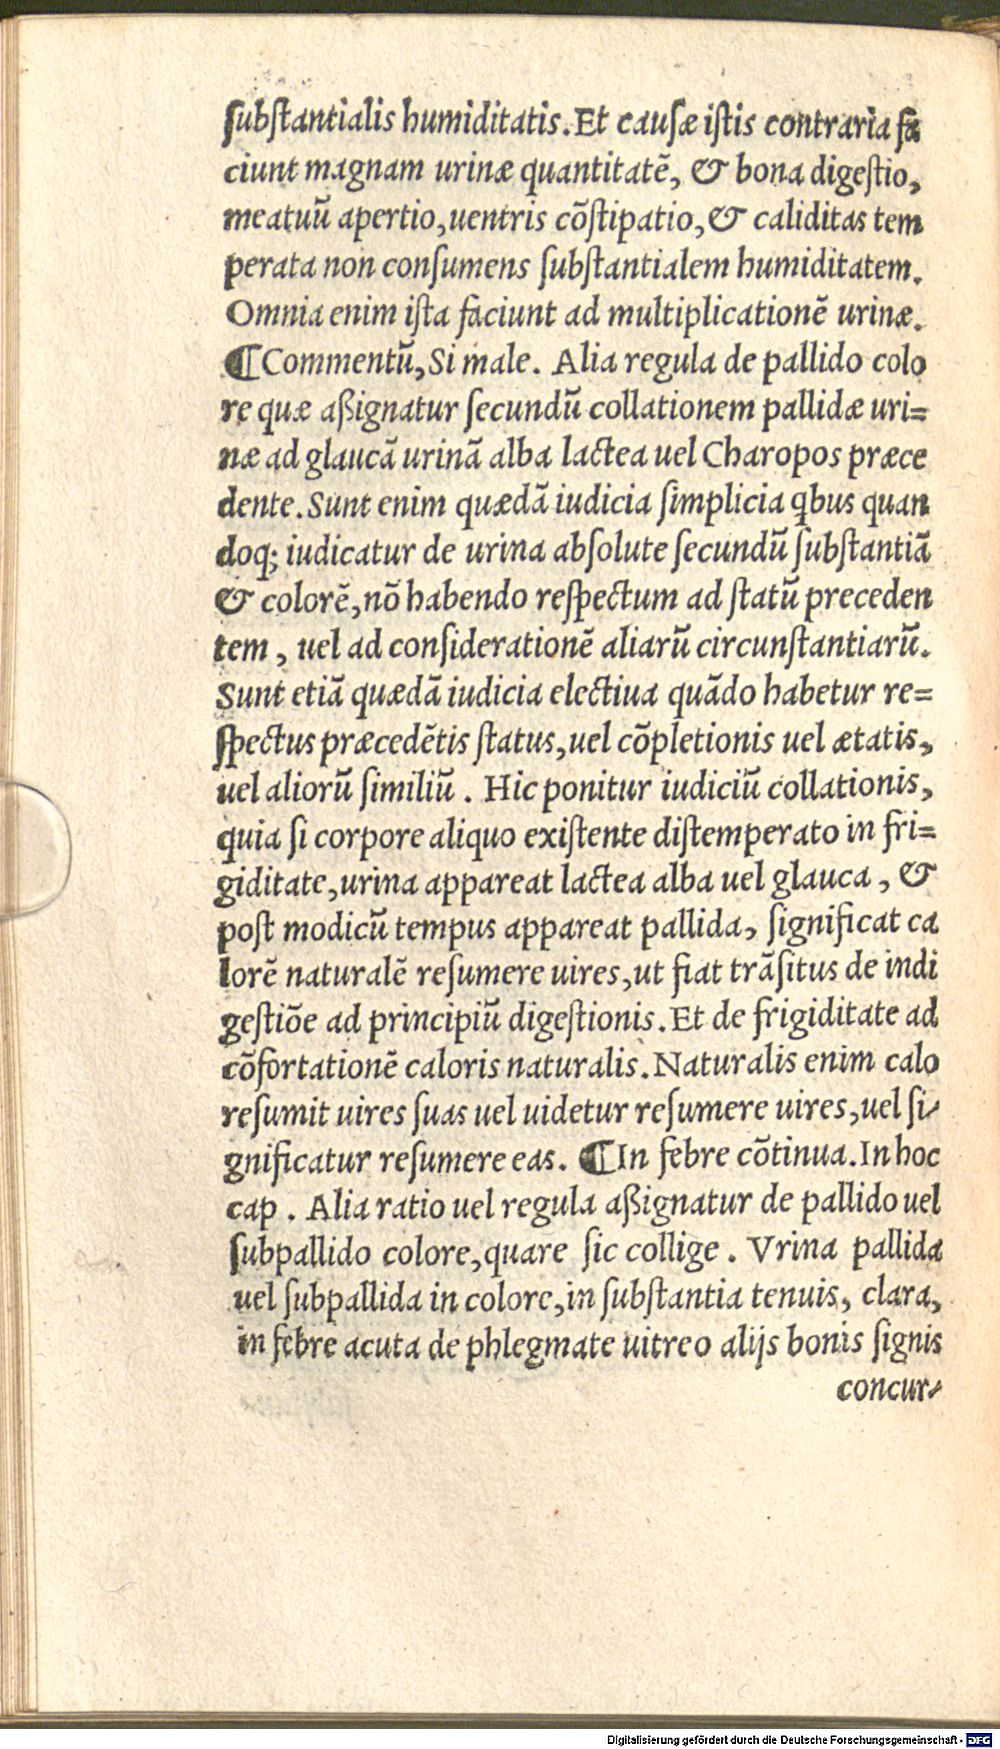 ſubſtantialis humiditatis. Et cauſæ iſtis contraria fa
ciunt magnam urinæ quantitatẽ, & bona digeſtio,
meatuũ apertio, uentris cõſtipatio, & caliditas tem
perata non conſumens ſubſtantialem humiditatem.
Omnia enim iſta faciunt ad multiplicationẽ urinæ.
¶Commentũ, Si male. Alia regula de pallido colo
re quæ aßignatur ſecundũ collationem pallidæ uri=
næ ad glaucã urinã alba lactea uel Charopos præce
dente. Sunt enim quædã iudicia ſimplicia qbus quan
doq; iudicatur de urina abſolute ſecundũ ſubſtantiã
& colorẽ, nõ habendo reſpectum ad ſtatũ preceden
tem, uel ad conſiderationẽ aliarũ circunſtantiarũ.
Sunt etiã quædã iudicia electiua quãdo habetur re=
ſpectus præcedẽtis ſtatus, uel cõpletionis uel ætatis,
uel aliorũ ſimiliũ. Hic ponitur iudiciũ collationis,
quia ſi corpore aliquo exiſtente diſtemperato in fri=
giditate, urina appareat lactea alba uel glauca, &
poſt modicũ tempus appareat pallida, ſignificat ca
lorẽ naturalẽ reſumere uires, ut fiat trãſitus de indi
geſtiõe ad principiũ digeſtionis. Et de frigiditate ad
cõfortationẽ caloris naturalis. Naturalis enim calo
reſumit uires ſuas uel uidetur reſumere uires, uel ſi-
gnificatur reſumere eas. ¶In febre cõtinua. In hoc
cap. Alia ratio uel regula aßignatur de pallido uel
ſubpallido colore, quare ſic collige. Vrina pallida
uel ſubpallida in colore, in ſubſtantia tenuis, clara,
in febre acuta de phlegmate uitreo alijs bonis ſignis
concur-
Digitalisierung gefördert durch die Deutsche Forschungsgemeinschaft - DFG